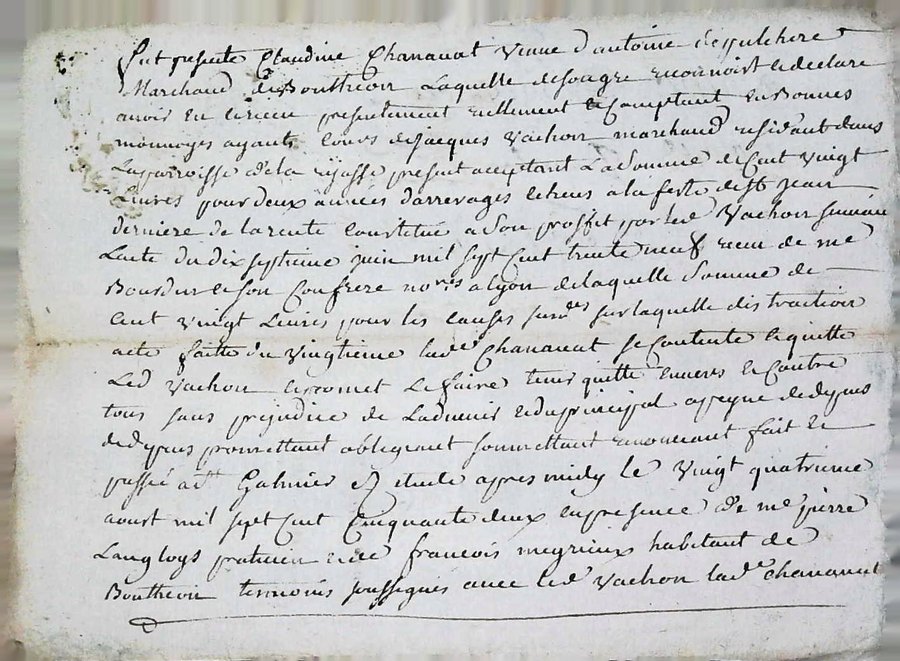 fut presente Claudine Chanavat veuve d'antoine sepulchre
Marchand de Boutheon Laquelle de son gre reconnoist et declare
avoir eu et receu presentement reellement et Comptant en Bonnes
monnoyes ayants cours de Jacques Vachon marchand residant dans
La parroisse de la present acceptant La Somme de Cent Vingt
Livres pour deux années d'arrerages echeus a la feste de St Jean
derniere de la rente Constitué a Son proffit par led Vachon suivant
L'acte du dix septieme juin mil sept Cent trente neuf receu de me
et son Confrere nores a Lyon de laquelle Somme de
Cent Vingt Livres pour les causes susdes sur laquelle distraction
acte faitte du Vingtieme lade Chanavat se Contente et quitte
Led Vachon et promet Le faire tenir quitte envers et Contre
tous sans prejudice de Ladvenir et du principal a peyne de depens
de depens promettant obligeant sommettant renonceant fait et
passé a St Galmier etude apres midy Le Vingt quatrieme
aoust mil sept Cent Cinquante deux en presence de me pierre
Langloys praticien et de francois megrieux habitant de
Boutheon temoins soussignes avec led Vachon lade chanavat